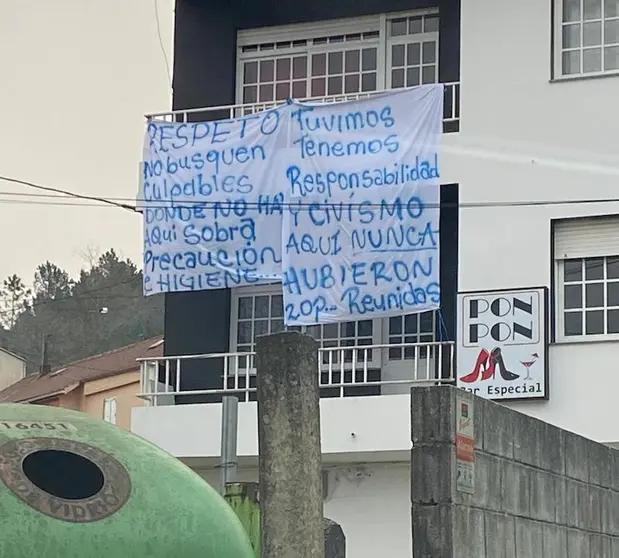 RESPETO
No busquen
Culpables
DONDE NO HAY
Aqui Sobra
Precaución
e HIGIENE...
Tuvimos
Tenemos
Responsabilidad
Y CIVISMO
AQUI NUNCA
HUBIERON
20p... Reunidas
PON
PON
Bar Especial
16451
DE VIDRIO